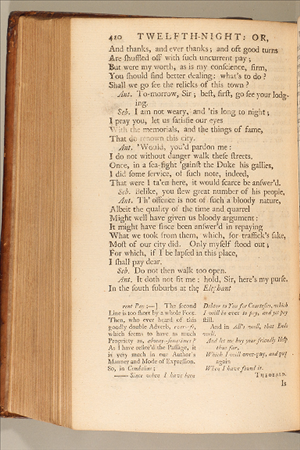 410 TWELFTH-NIGHT: OR,
And thanks, and ever thanks; and oft good turns
Are shuffled off with such uncurrent pay;
But were my worth, as is my conscience, firm,
You should find better dealing: what's to do?
Shall we go see the relicks of this town?
Ant. To-morrow, Sir; best, first, go see your lodg-
ing.
Seb. I am not weary, and 'tis long to night;
I pray you, let us satisfie our eyes
With the memorials, and the things of fame,
That do renown this city.
Ant. 'Would, you'd pardon me:
I do not without danger walk these streets.
Once, in a sea-fight 'gainst the Duke his gallies,
I did some service, of such note, indeed,
That were I ta'en here, it would scarce be answer'd.
Seb. Belike, you slew great number of his people.
Ant. Th' offence is not of such a bloody nature,
Albeit the quality of the time and quarrel
Might well have given us bloody argument:
It might have since been answer'd in repaying
What we took from them, which, for traffick's sake,
Most of our city did. Only myself stood out;
For which, if I be lapsed in this place,
I shall pay dear.
Seb. Do not then walk too open.
Ant. It doth not fit me: hold, Sir, here's my purse.
In the south suburbs at the Elephant
rent Pay;—] The second
Line is too short by a whole Foot.
Then, who ever heard of this
goodly double Adverb,
which seems to have as much
Propriety as,
As I have restor'd the Passage, it
is very much in our Author's
Manner and Mode of Expression.
So, in Cymbeline;
—Since when I have been
Debtor to You for Courtesies, which
I will be ever to pay, and yet pay
still.
And in All's well, that Ends
well.
And let me buy your friendly Help
thus far,
Which I will over-pay, and pay
again
When I have found it.
THEOBALD.
Is